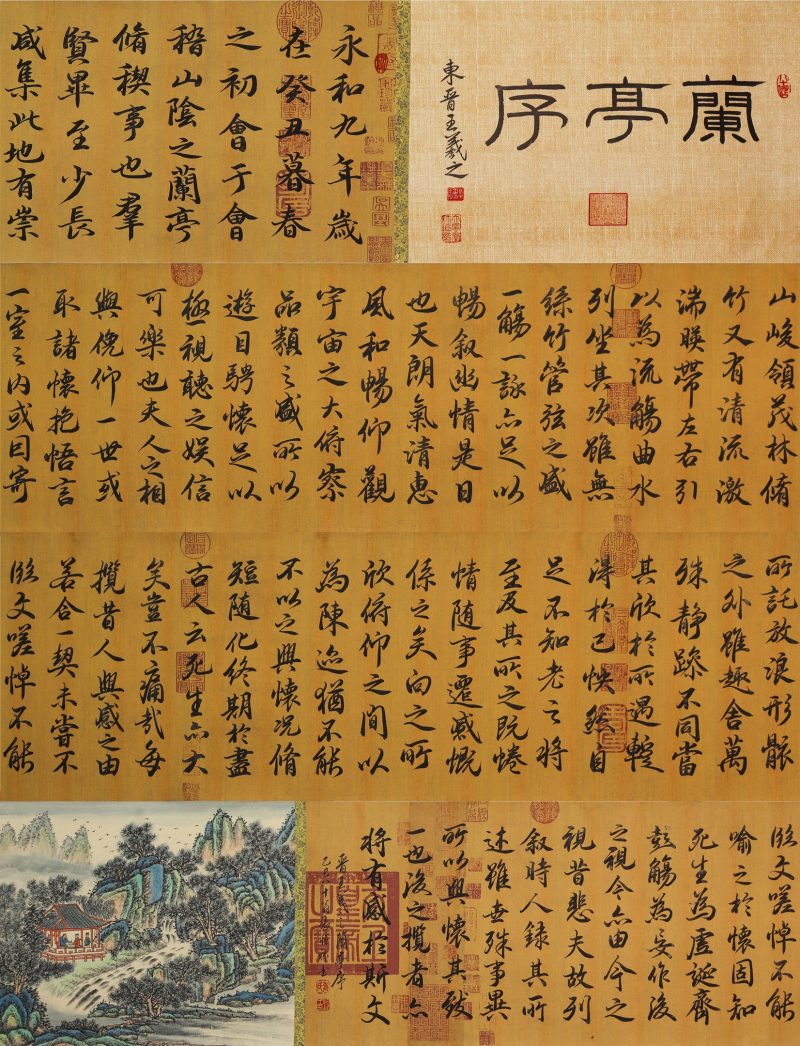 蘭亭序
東晉王羲之
永和九年歲
在癸丑暮春
之初會于會
稽山陰之蘭亭
脩稧事也羣
賢畢至少長
咸集此地有崇
山峻領茂林脩
竹又有清流激
湍暎帶左右引
以為流觴曲水
列坐其次雖無
絲竹管弦之盛
一觴一詠亦足以
暢敘幽情是日
也天朗氣清惠
風和暢仰觀
宇宙之大俯察
品類之盛所以
遊目騁懷足以
極視聽之娛信
可樂也夫人之相
與俛仰一世或
取諸懷抱悟言
一室之內或因寄
所託放浪形骸
之外雖趣舍萬
殊靜躁不同當
其欣於所遇蹔
得於己怏然自
足不知老之將
至及其所之既惓
情隨事遷感慨
係之矣向之所
欣俯仰之間以
為陳迹猶不能
不以之興懷況脩
短隨化終期於盡
古人云死生亦大
矣豈不痛哉每
攬昔人興感之由
若合一契未嘗不
臨文嗟悼不能
臨文嗟悼不能
喻之於懷固知
死生為虛誕齊
彭觴為妄作後
之視今亦由今之
視昔悲夫故列
敘時人錄其所
述雖世殊事異
所以興懷其致
一也後之攬者亦
將有感於斯文